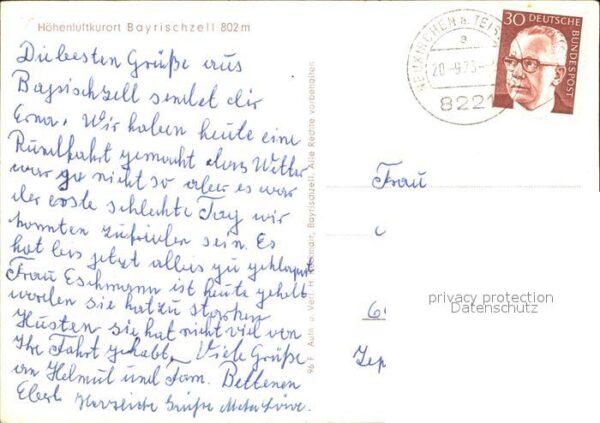 Höhenluftkurort Bayrischzell 802 m
Die besten Grüße aus
Bayrischzell sendet dir
Erna. Wir haben heute eine
Rundfahrt gemacht das Wetter
war ja nicht so aber es war
der erste schlechte Tag wir
konnten zufrieden sein. Es
hat bis jetzt alles gut geklappt
Frau Eschmann ist heute geholt
worden sie hat zu starken
Husten sie hat nicht viel von
Ihr Fahrt gehabt. Viele Grüße
an Helmut und Fam.
Herzliche Grüße
96 F Aufn. u. Verl. Bayrischzell. Alle Rechte vorbehalten
NEUKIRCHEN a. TEIS
a
20-9.73
8221
30 DEUTSCHE
BUNDESPOST
Frau
privacy protection
Datenschutz